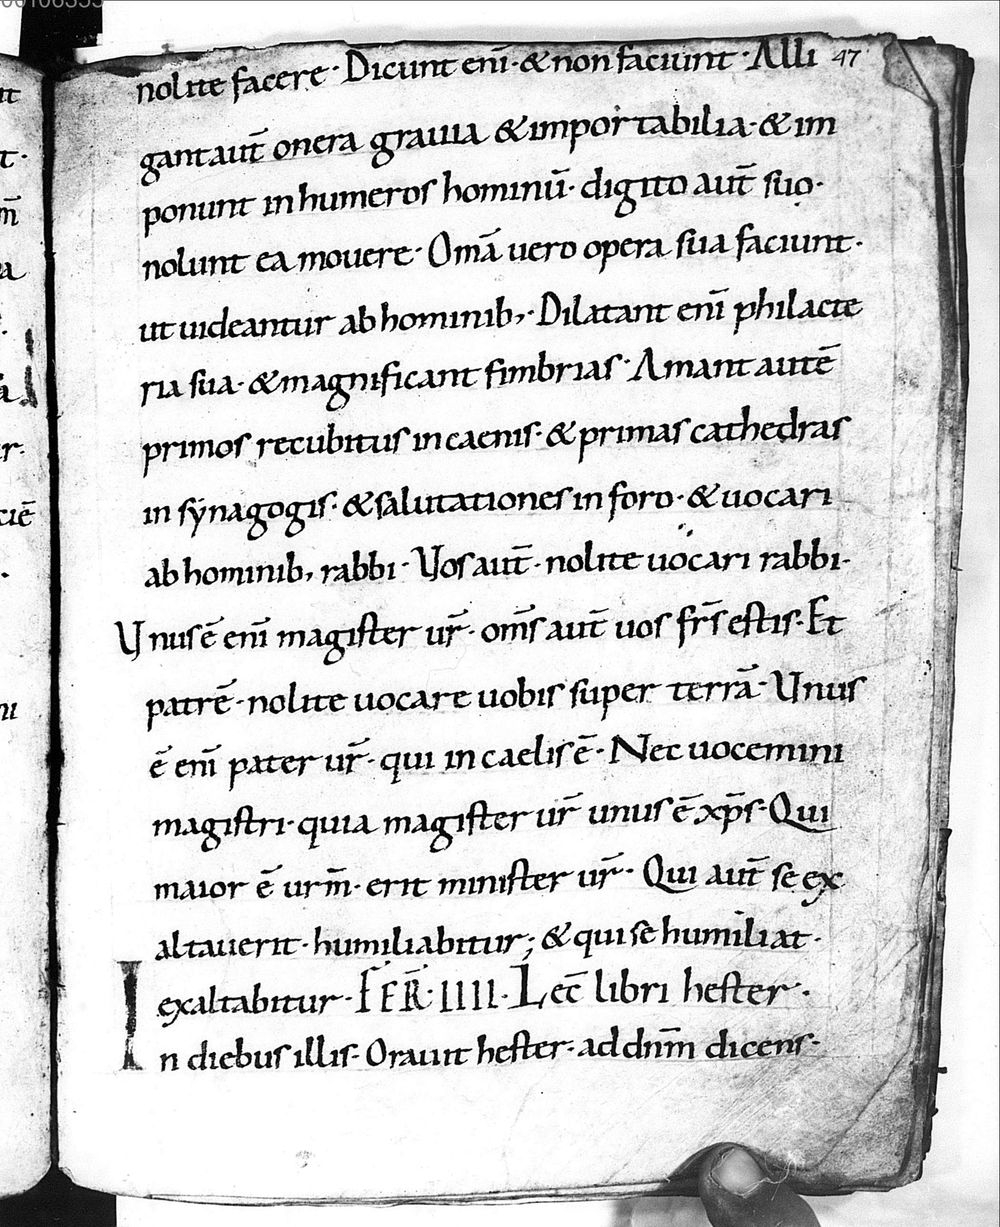 nolite facere · Dicunt eni̅ · & non faciunt · Alli 47
gant aut̅ onera grauia & importabilia · & im
ponunt in humeros hominu̅ · digito aut̅ suo ·
nolunt ea mouere · Om̅a uero opera sua faciunt ·
ut uideantur ab hominib, · Dilatant eni̅ philacte
ria sua · & magnificant fimbrias · Amant aute̅
primos recubitus in caenis · & primas cathedras
in synagogis · & salutationes in foro · & uocari
ab hominib, rabbi · Vos aut̅ · nolite uocari rabbi ·
Vnus e̅ eni̅ magister ur̅ · om̅s aut̅ uos fr̅s estis · Et
patre̅ · nolite uocare uobis super terra̅ · Unus
e̅ eni̅ pater ur̅ · qui in caelis e̅ · Nec uocemini
magistri · quia magister ur̅ unus e̅ xp̅s · Qui
maior e̅ urm̅ · erit minister ur̅ · Qui aut̅ se ex
altauerit · humiliabitur ; & qui se humiliat ·
exaltabitur · FER̅ · IIII · Lec̅t libri hester ·
In diebus illis · Orauit hester · ad dn̅m dicens ·